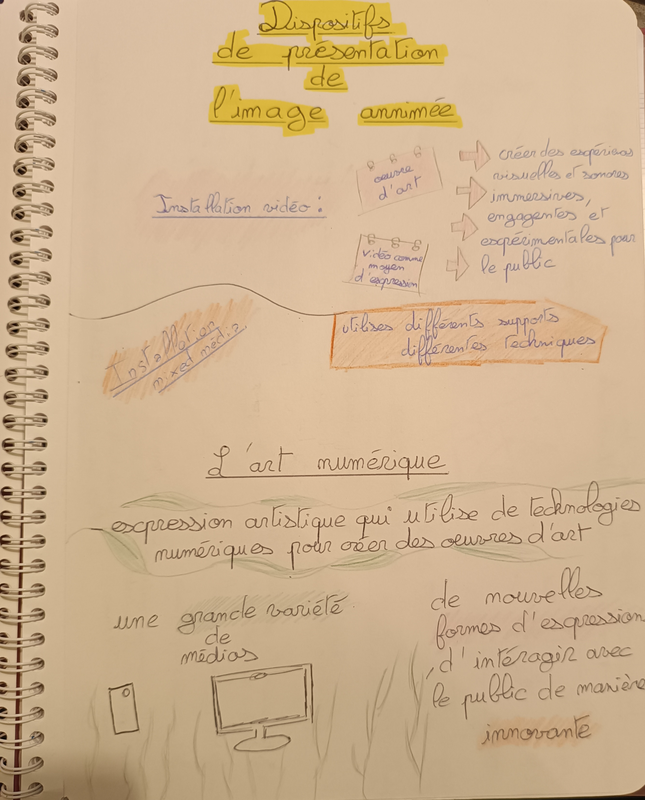 Dispositifs
de présentation
de
l'image annimée
Installation vidéo :
oeuvre
d'art
vidéo comme
moyen
d'expression
créer des expériences
visuelles et sonores
immersives,
engagentes et
expérimentales pour
le public
Installation
mixed média
utilises différents supports
différentes techniques
L'art numérique
expression artistique qui utilise de technologies
numériques pour créer des oeuvres d'art
une grande variété
de
médias
de nouvelles
formes d'expression
, d'intéragir avec
le public de manière
innovante